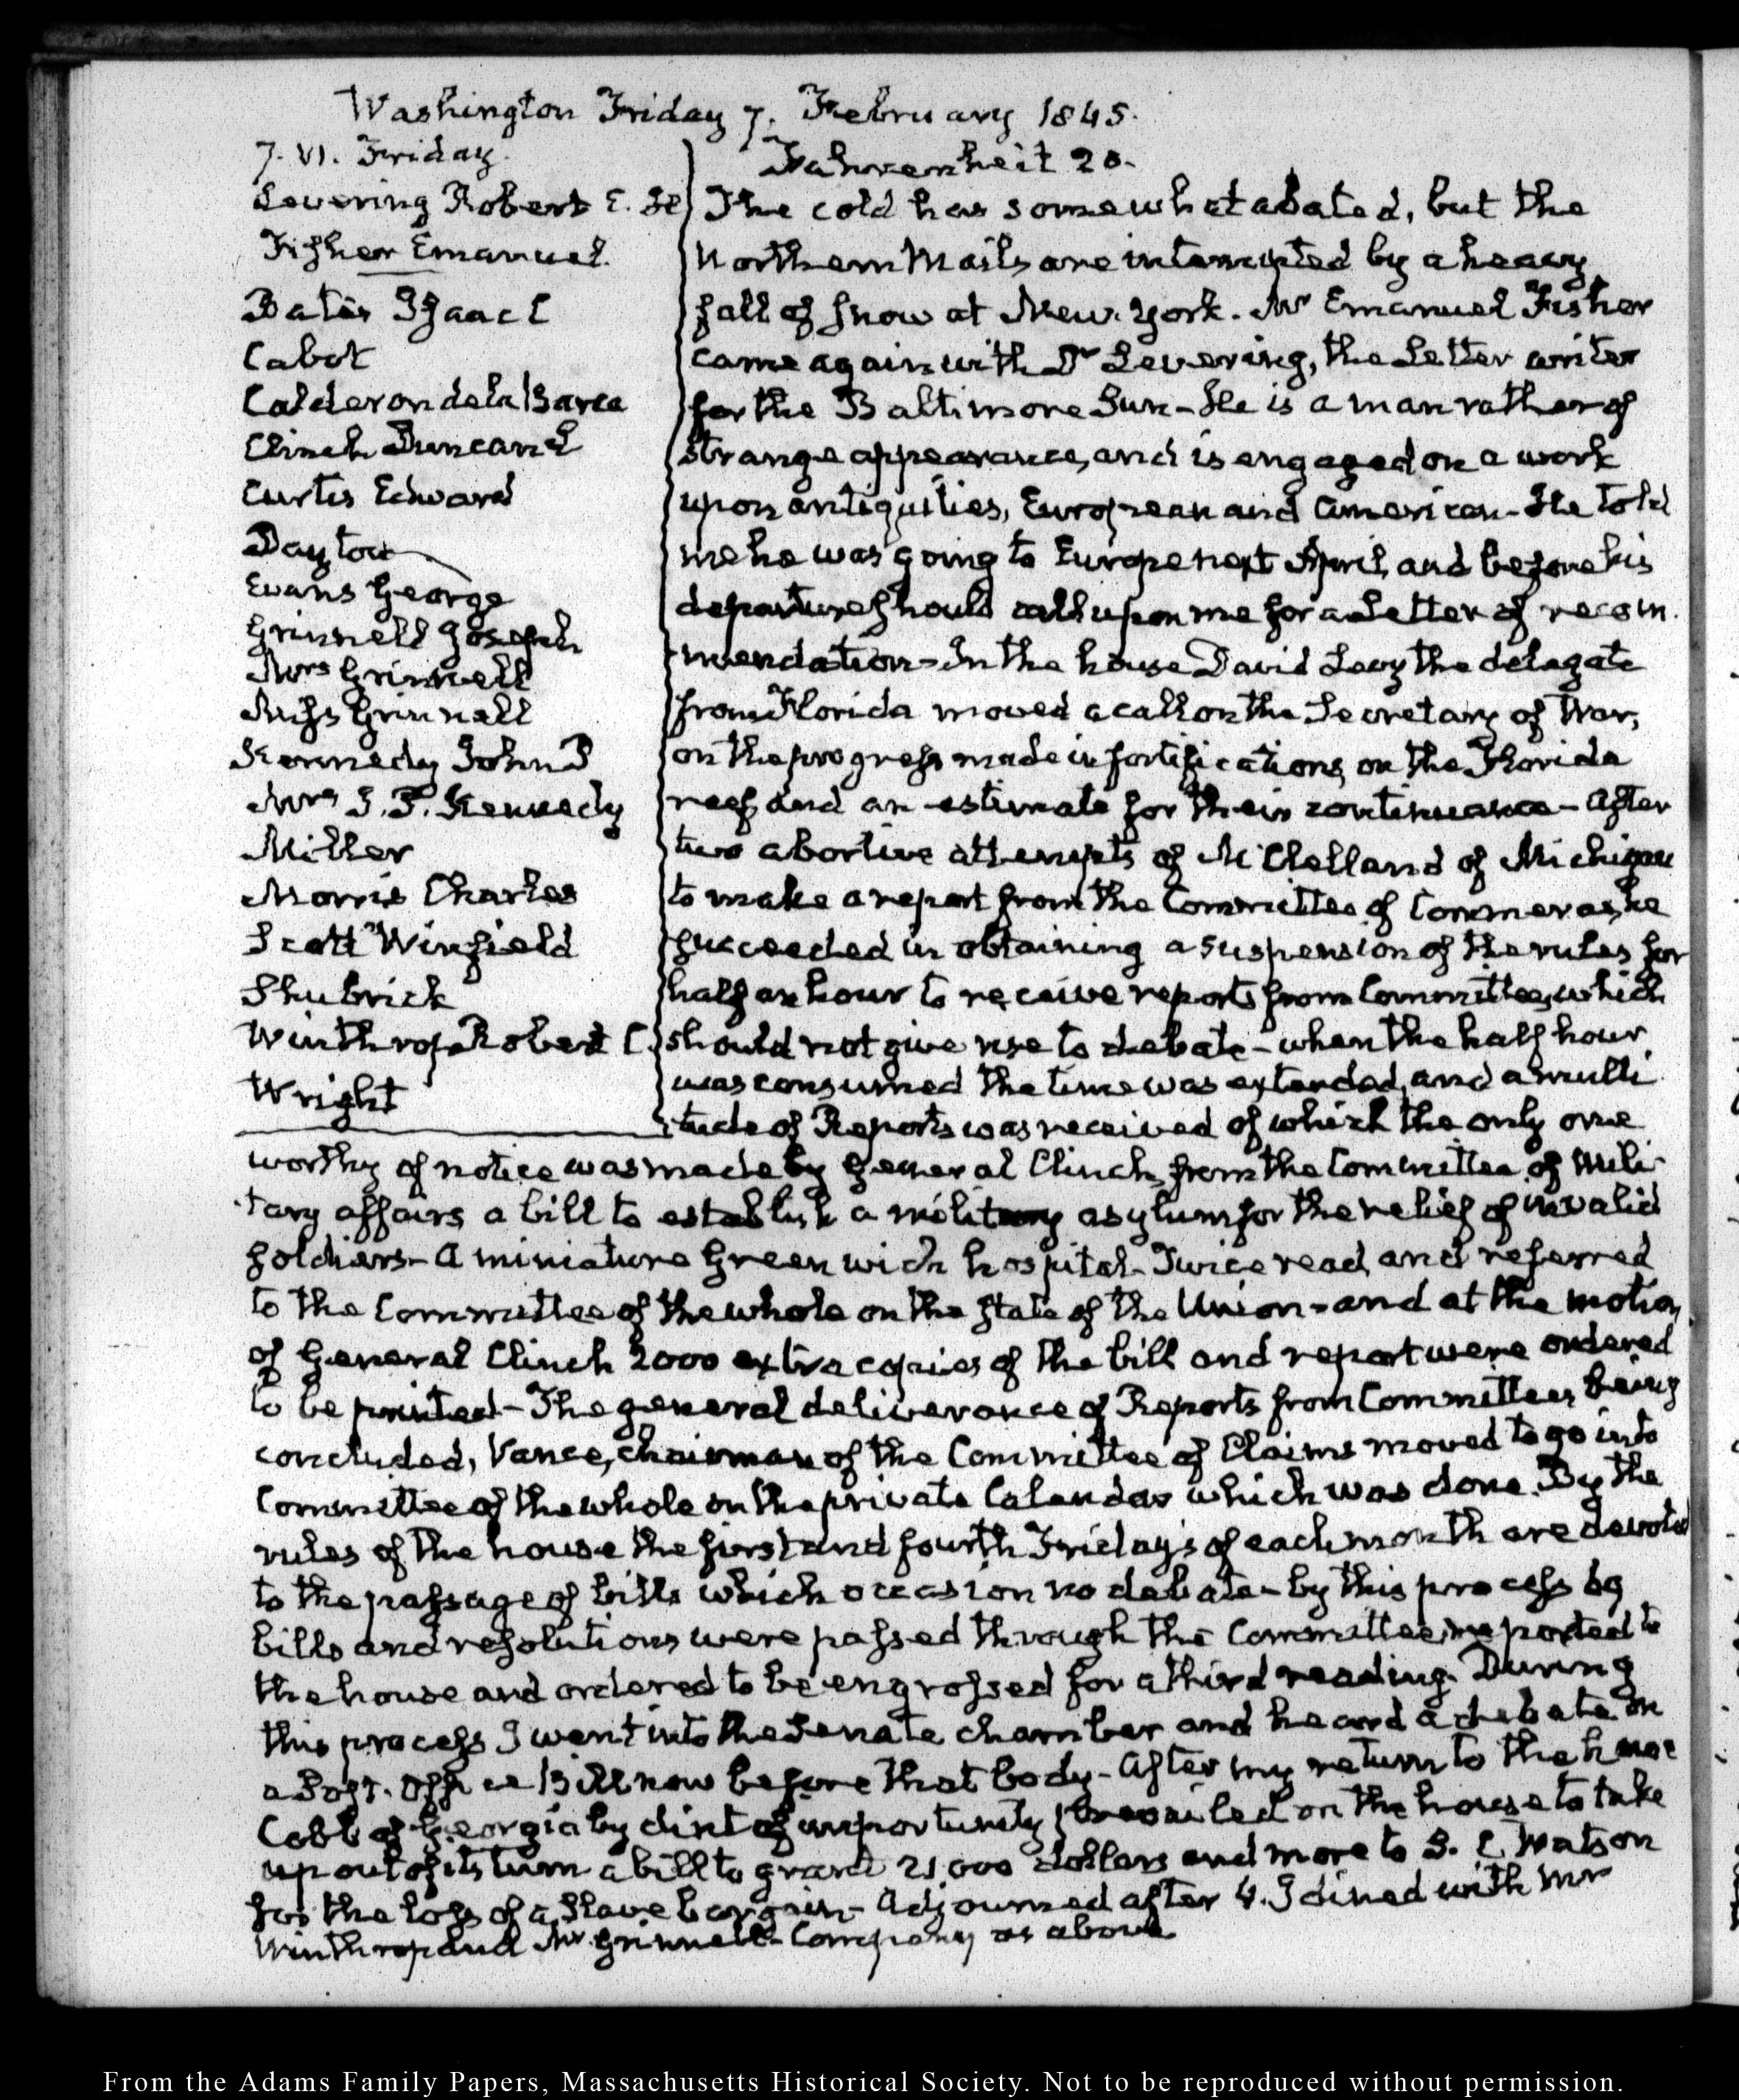 Washington Friday 7. February 1845.
7. VI. Friday.
Levering Robert E. H
Fisher Emanuel.
Bates Isaac C
Cabot
Calderon de la Barca
Clinch Duncan L
Curtis Edward
Dayton
Evans George
Grinnell Joseph
Mrs Grinnell
Miss Grinnell
Kennedy John P
Mrs J. P. Kennedy
Miller
Morris Charles
Scott Winfield
Shubrick
Winthrop Robert C.
Wright
Fahrenheit 20.
The cold has somewhat abated, but the
Northern Mails are interrupted by a heavy
fall of snow at New-York. Mr Emanuel Fisher
came again with Dr Levering, the Letter writer
for the Baltimore Sun- He is a man rather of
strange appearance, and is engaged on a work
upon antiquities, European and American- He told
me he was going to Europe next April, and before his
departure should call upon me for a Letter of recom-
mendation- In the house David Levy the delegate
from Florida moved a call on the Secretary of War,
on the progress made in fortifications on the Florida
reef and an estimate for their continuance- After
two abortive attempts of McClelland of Michigan
to make a report from the Committee of Commerce, he
succeeded in obtaining a suspension of the rules for
half an hour to receive reports from Committees, which
should not give rise to debate- when the half hour
was consumed the time was extended, and a multi
tude of Reports was received of which the only one
worthy of notice was made by General Clinch, from the Committee of Mili-
tary affairs a bill to establish a military asylum for the relief of invalid
soldiers- A miniature Greenwich hospital- Twice read, and referred
to the Committee of the whole on the state of the Union- and at the motion
of General Clinch 2000 extra copies of the bill and report were ordered
to be printed- The general deliverance of Reports from Committees being
concluded, Vance, chairman of the Committee of Claims moved to go into
Committee of the whole on the private Calendar which was done. By the
rules of the house the first and fourth Friday's of each month are devoted
to the passage of bills which occasion no debate- by this process 69
bills and resolutions were passed through the Committee, reported to
the house and ordered to be engrossed for a third reading. During
this process I went into the Senate chamber and heard a debate on
a Post-Office Bill now before that body- After my return to the house
Cobb of Georgia by dint of importunity prevailed on the house to take
up out of its turn a bill to grant 21,000 dollars and more to J. C. Watson
for the loss of a slave bargain- Adjourned after 4. I dined with Mr
Winthrop and Mr Grinnell- Company as above
From the Adams Family Papers, Massachusetts Historical Society. Not to be reproduced without permission.